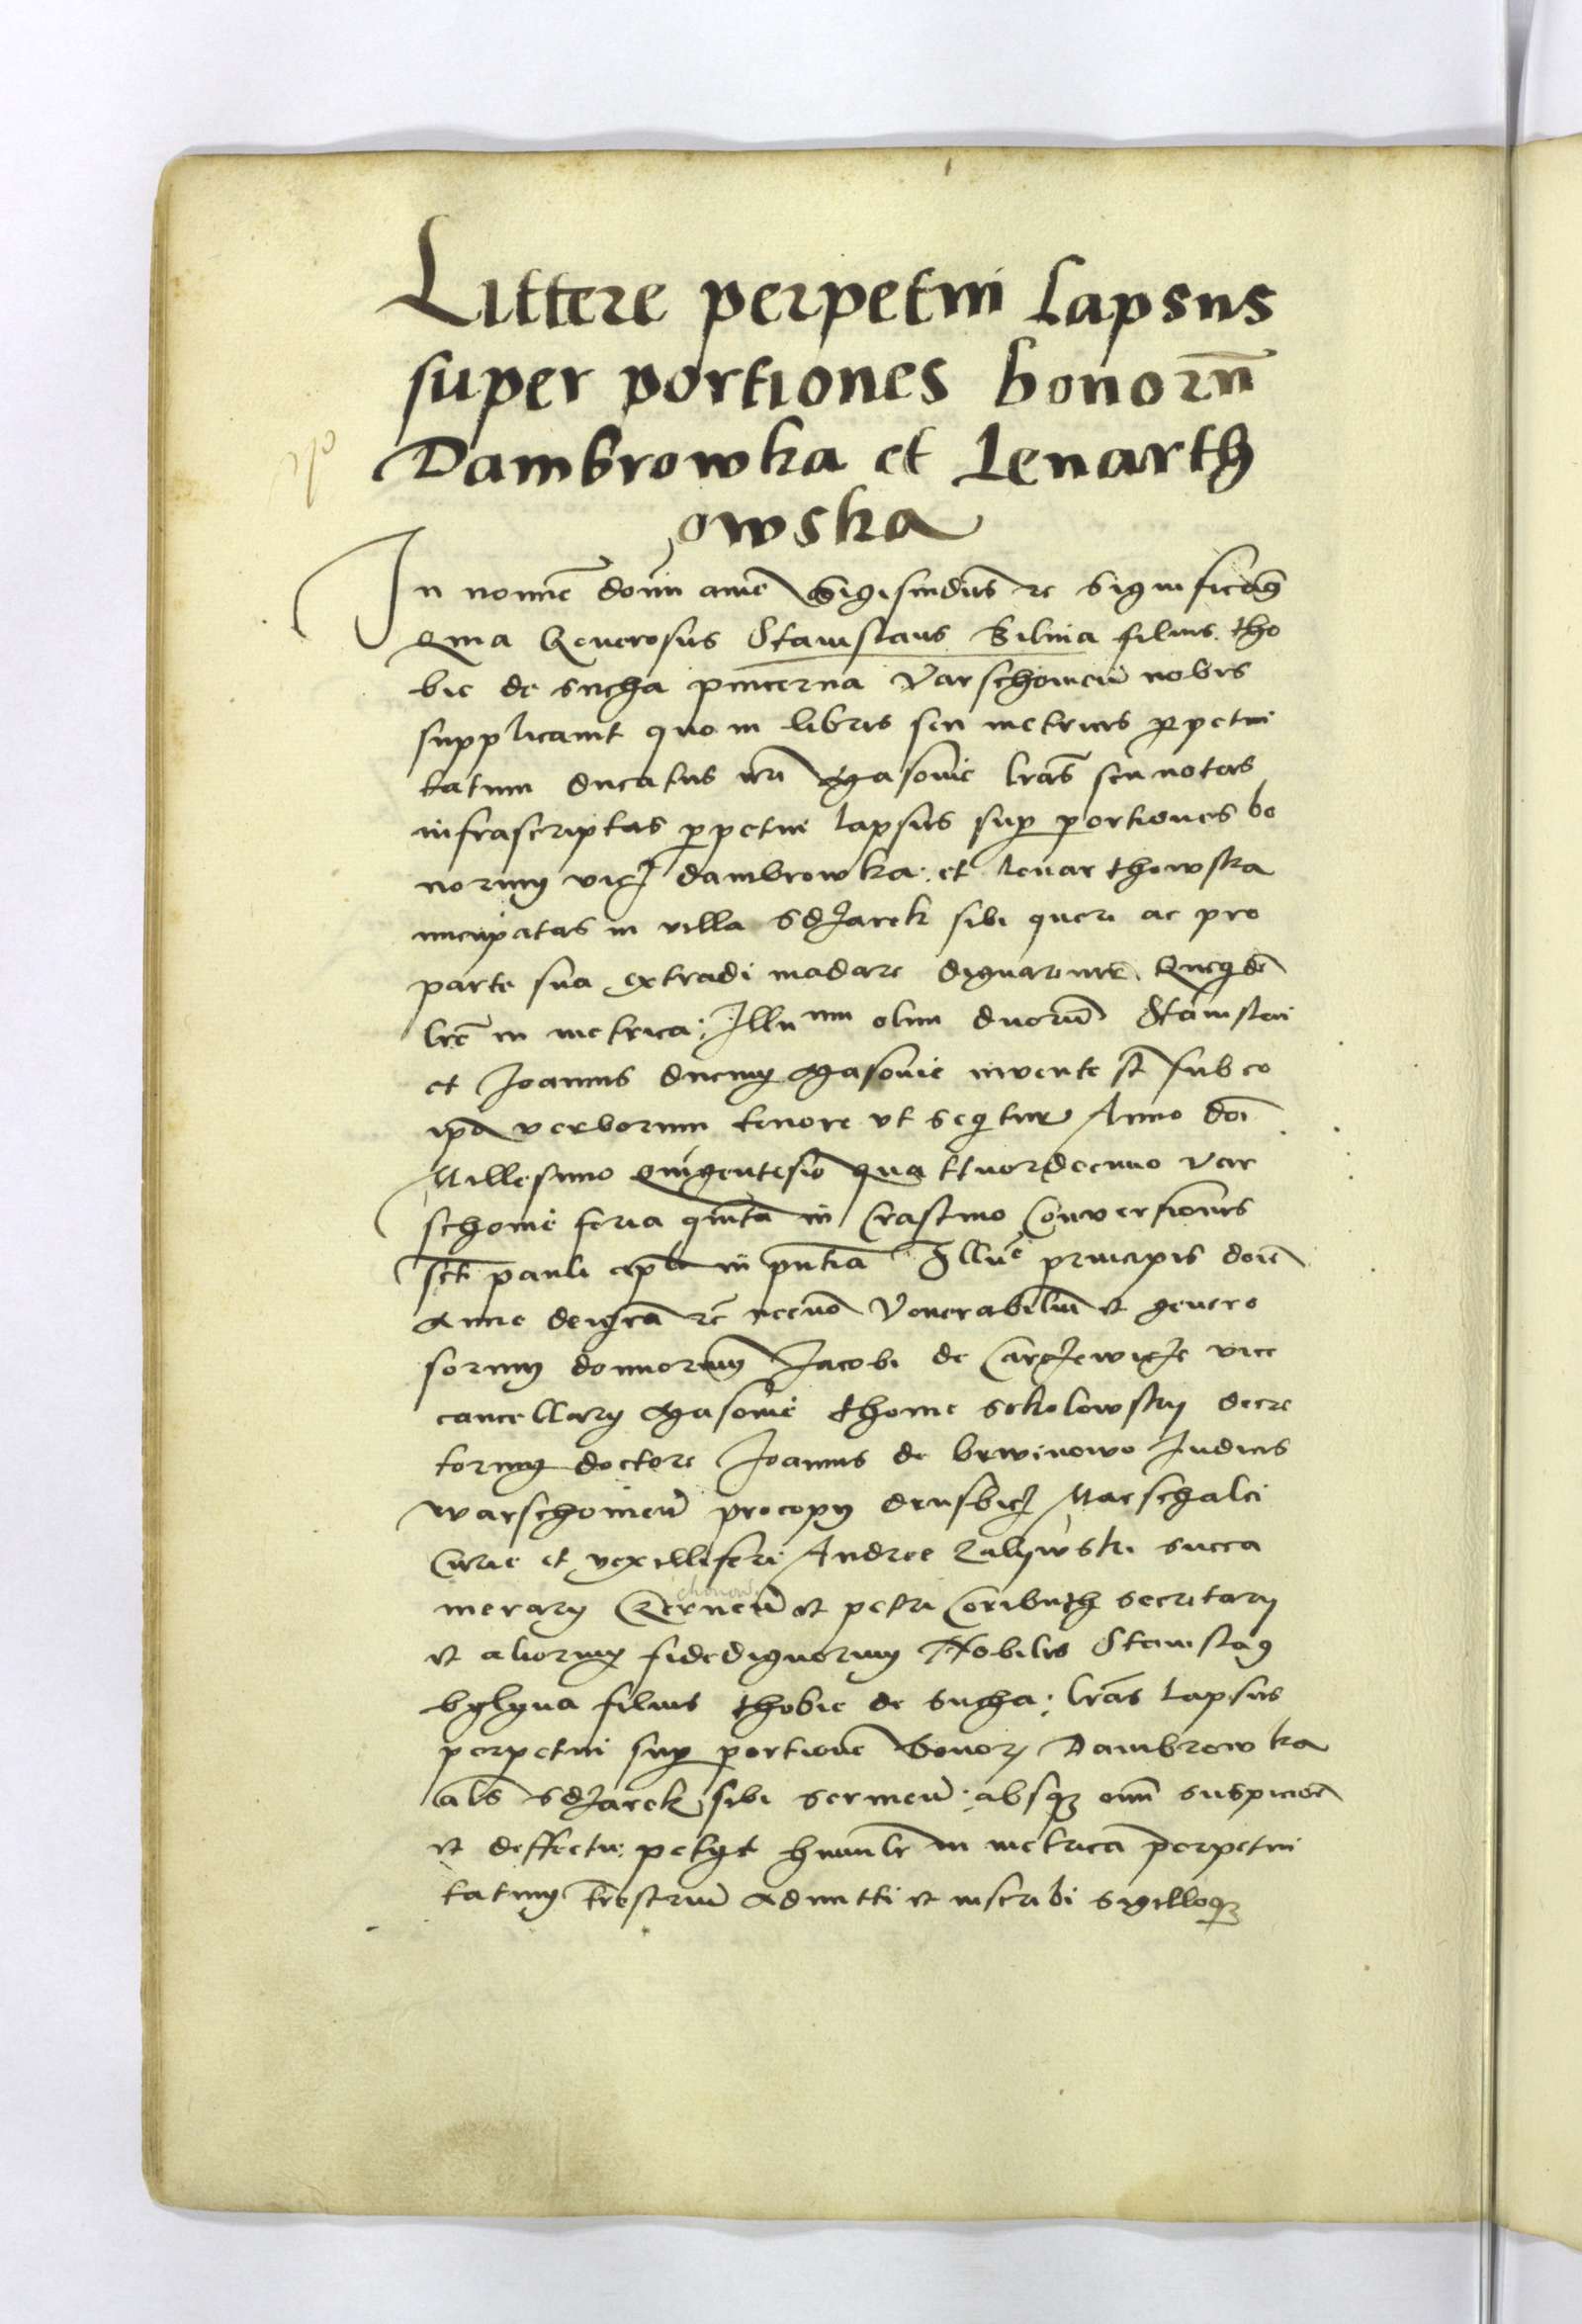 Littere perpetui Lapsus
super portiones bonorū
Dambrowka et Lenarth
owska
In nomīe domī amē Sigismdus rc significam9
Quia Generosus Stanislaus Bilina filius tho
bie de sucha pincerna Varschovien̄ nobis
supplicavit quo in libris seu metricis p̱petui
tatum ducatus nrī Masovie lrās seu notas
infrascriptas p̱petui lapsus sup̱ portiones bo
norum vicz dambrowka et lenarthowska
nuncupatas in villa Sdzarek sibi queri ac pro
parte sua extradi mādare dignaremr̄ Queqdē
lrē in metrica Illu mi olim ducrū Stanislai
et Joannis ducum Masovie invente st̄ sub eo
ip̄o verborum tenore ut seqitur Anno doī
Millesimo quīgentesīo quattuordecimo Var
schovie feria quīta in Crastino Conversionis
scti pauli ap̄li in pn̄tia Illūe principis doīe
Anne dei grā rc̄ necnō Venerabiliū et genero
sorum dominorum Jacobi de Carczewicze vice
cancellary Masovie thome sokolowsky decre
torum doctore Joannis de brwinowo Judicis
warschovien̄ procopy drusbicz Marschalci
Curie et vexilliferi Andree Zalijwski succa
merary Czerneū et petri Coributh secretary
chnow
et aliorum fidedignorum Nobilis Stanisla9
bylyna filius thobie de Sucha lrās lapsus
perpetui sup̱ portione bonor̄ Dambrowka
als̄ Sdzarek sibi servien̄ absqz om̄i suspiciōe
et deffectu petyt humilr̄ in metricā perpetui
tatum tr̄estrium admitti et inscribi sigilloqz